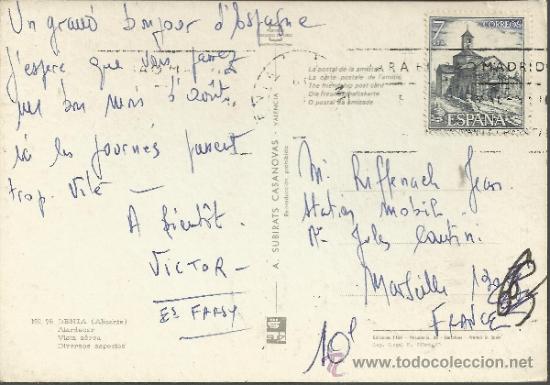 Un grand bonjour d'Espagne
j'espère que vous passez
un bon mois d'août,
ici les journés passent
trop vite —
A Bientôt.
VICTOR —
Es FARSY
7
PTA
CORREOS
ESPAÑA
MADRID
La postal de la amistad
La carte postale de l'amitié
The friendship post card
Die freundschaftskarte
O postal da amizade
A. SUBIRATS CASANOVAS - VALENCIA
Reproducción prohibida
Mr Riffenach Jean
Station Mobil
Pl. Jules Cantini
Marseille
FRANCE
10P
DENIA (Alicante)
Atardecer
Vista aérea
Diversos aspectos
todocoleccion.net